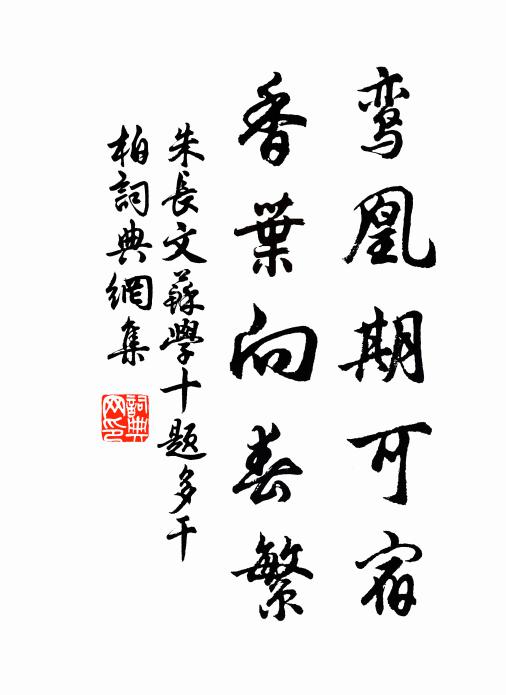 鸾凰期可宿
香葉向春繁
朱長文蘇學十题多干
柏詞典網集
詞典网印